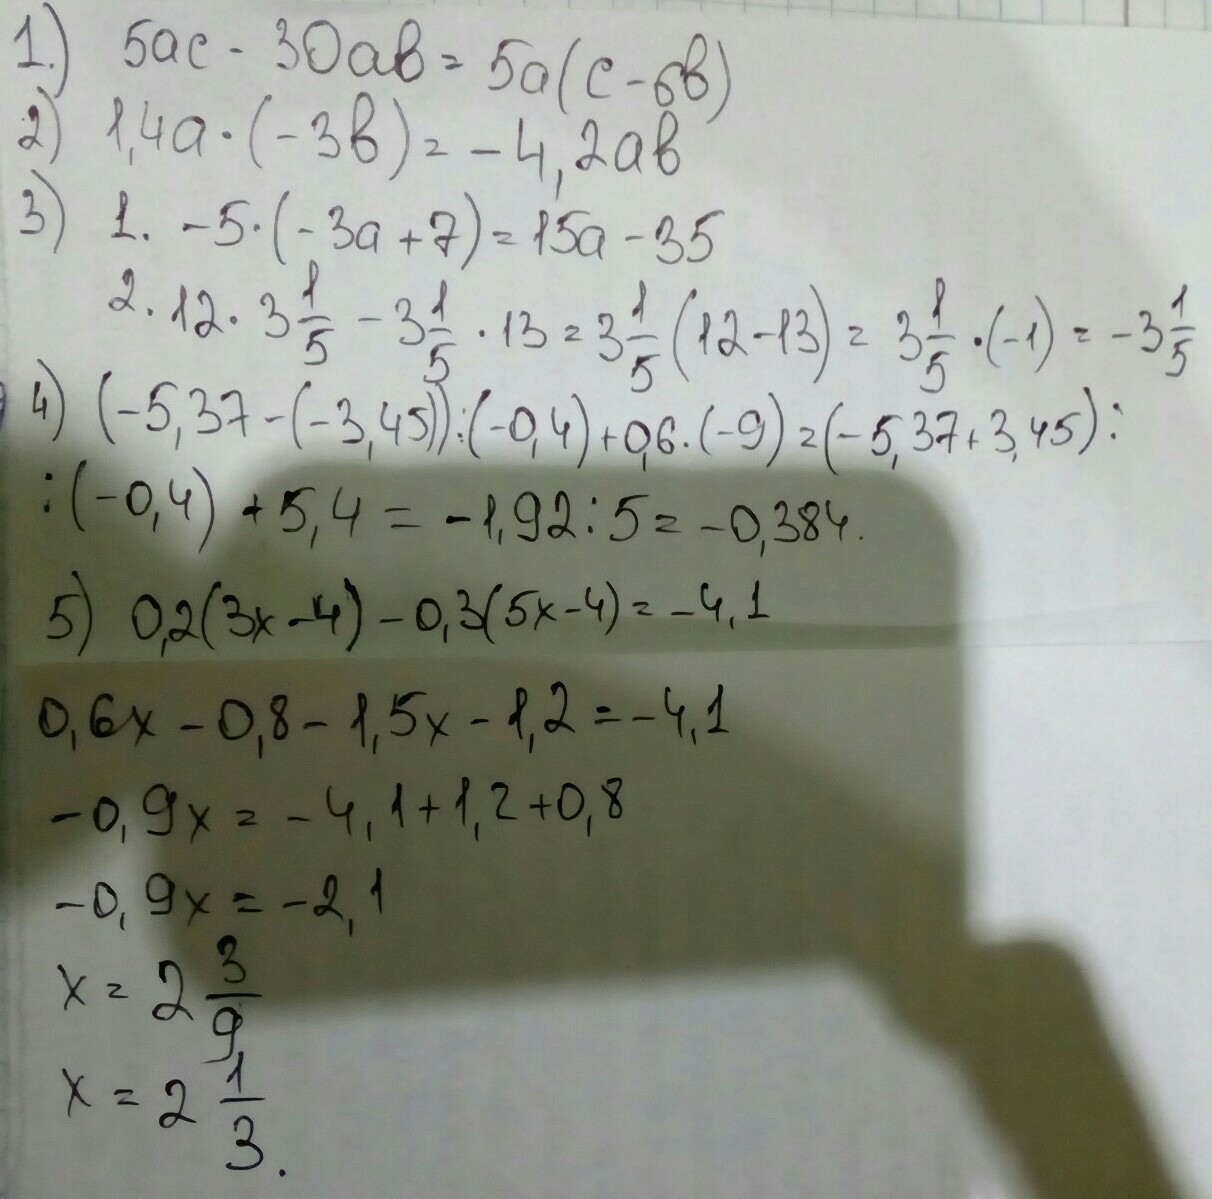 1.) 5ac - 30ав = 5a(c-6в)
2) 1,4a · (-3в) = -4,2ав
3) 1. -5·(-3a+7) = 15a - 35
2. 12 · 3 1/5 - 3 1/5 · 13 = 3 1/5 (12-13) = 3 1/5 · (-1) = -3 1/5
4) (-5,37-(-3,45)):(-0,4)+0,6·(-9) = (-5,37+3,45):
:(-0,4) + 5,4 = -1,92:5 = -0,384.
5) 0,2(3x-4) - 0,3(5x-4) = -4,1
0,6x - 0,8 - 1,5x - 1,2 = -4,1
-0,9x = -4,1+1,2+0,8
-0,9x = -2,1
x = 2 3/9
x = 2 1/3.